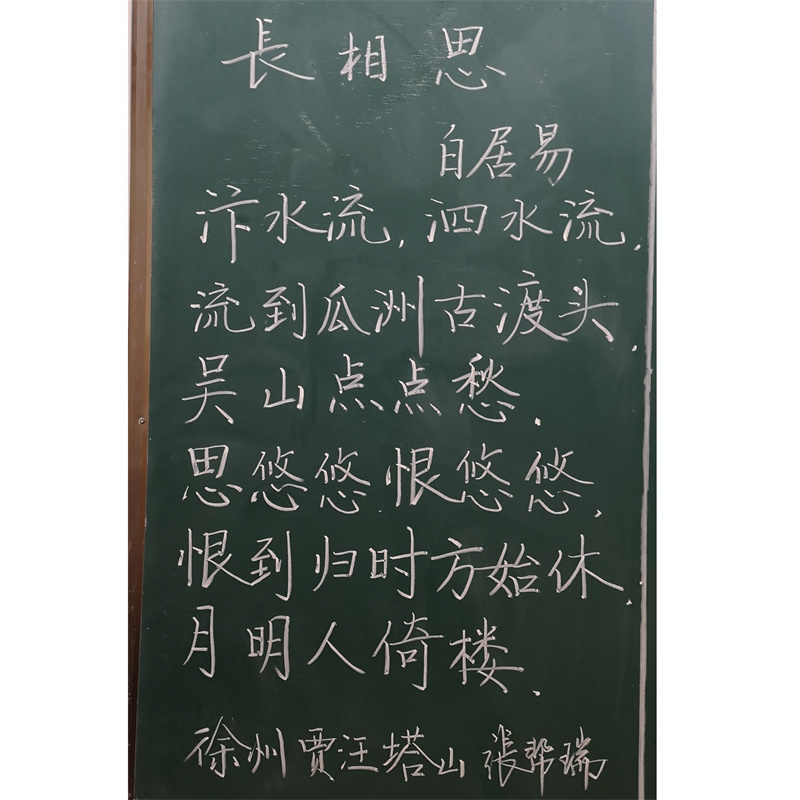 長相思
白居易
汴水流,泗水流,
流到瓜洲古渡头.
吴山点点愁.
思悠悠.恨悠悠.
恨到归时方始休.
月明人倚楼.
徐州贾汪塔山 張帮瑞